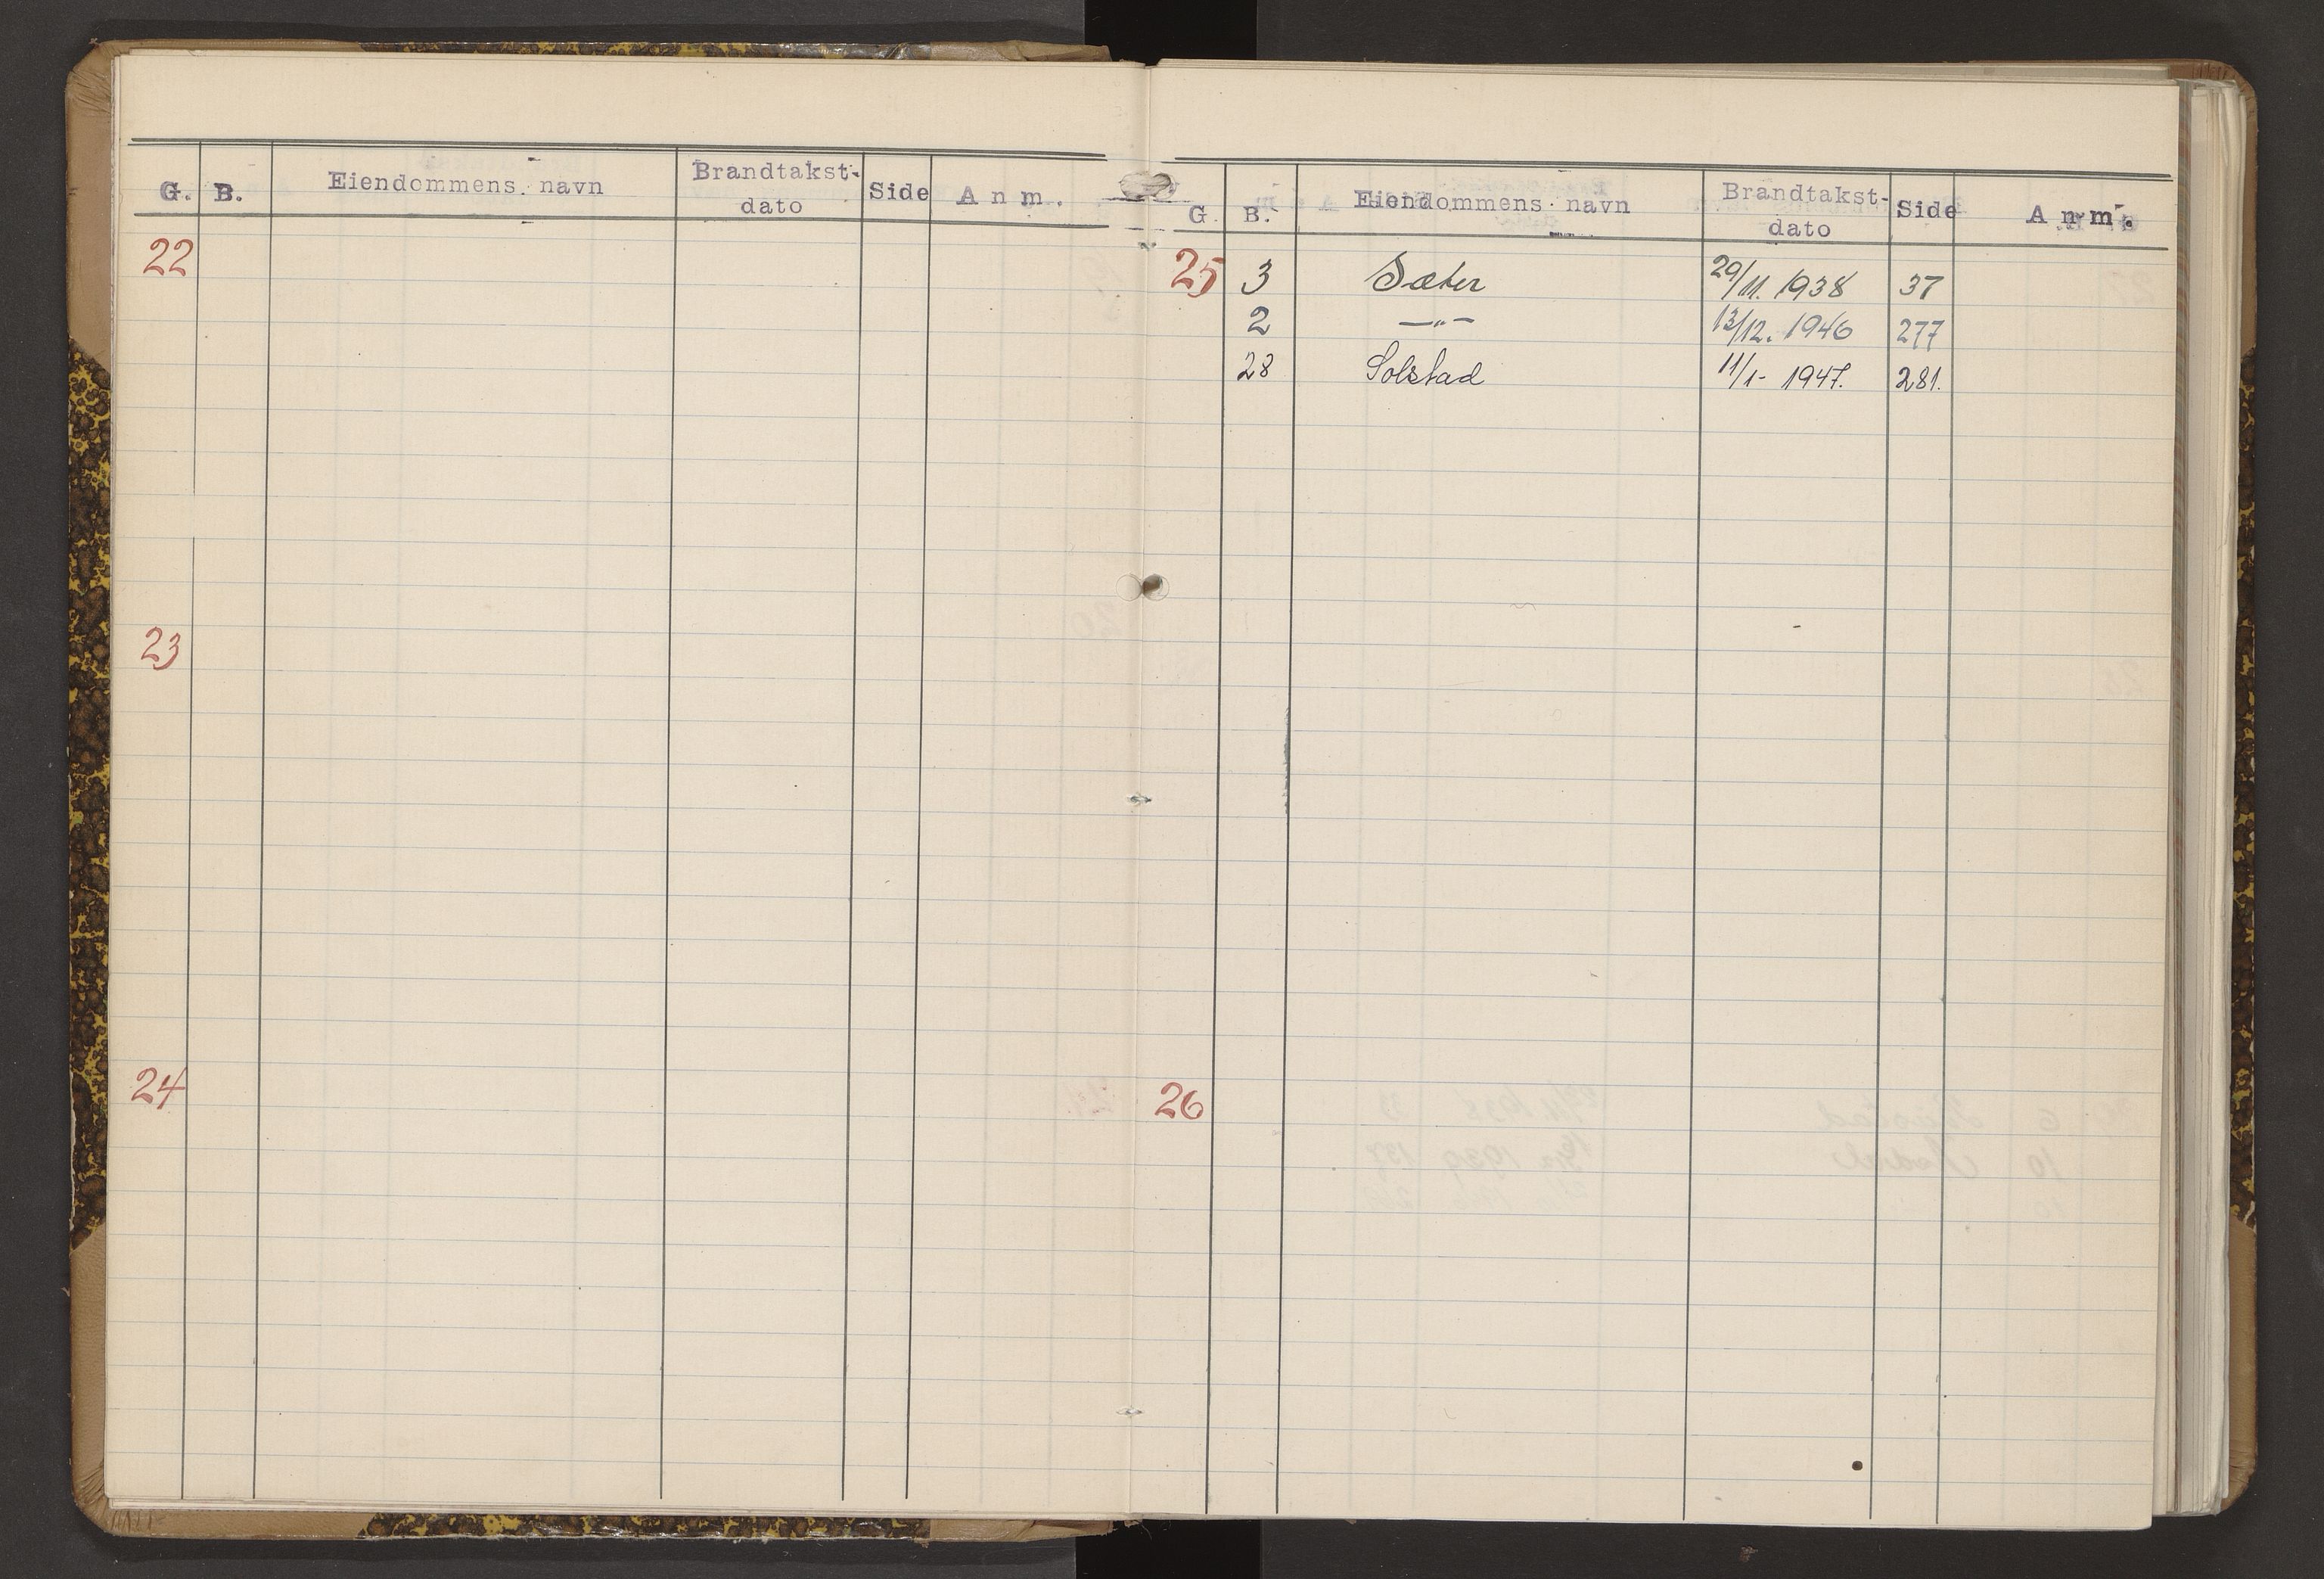 G. B. Eiendommens navn Brandtakst- dato Side Anm.
22
23
24
G. B. Eiendommens navn Brandtakst- dato Side Anm.
25 3 Sæter 29/11. 1938 37
2 —"— 13/12. 1946 277
28 Solstad 11/1- 1947. 281.
26